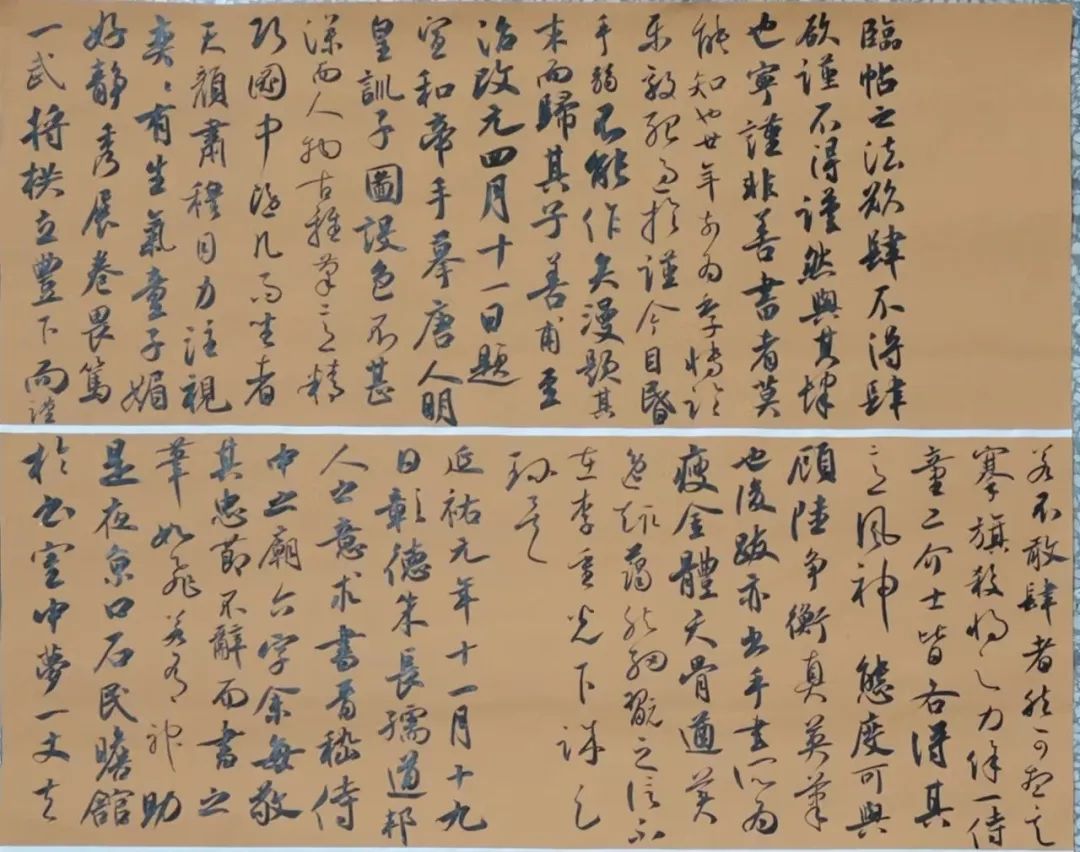 臨帖之法欲肆不得肆
欲謹不得謹然與其肆
也寧謹非善書者莫
能知也廿年前為季博臨
樂毅殊過於謹今目昏
手弱不能作矣漫題其
末而歸其子善甫至
治改元四月十一日題
宣和帝手摹唐人明
皇訓子圖設色不甚
深而人物古雅筆意精
巧圖中隱几而坐者
天顏肅穆目力註視
奕〻有生氣童子媚
好靜秀展卷畏篤
一武將拱立豐下而謹
若不敢肆者然可想其
搴旗殺將之力餘一侍
童二介士皆各得其
意風神態度可與
顧陸爭衡真英筆
也後跋亦出手書所為
瘦金體天骨遒美
逸趣藹然細翫之信不
在李重光下
延祐元年十一月十九
日彰德朱長孺道邦
人之意求書晉嵇侍
中之廟六字余每敬
其忠節不辭而書之
筆如飛若有神助
是夜京口石民瞻館
於書室中夢一丈夫